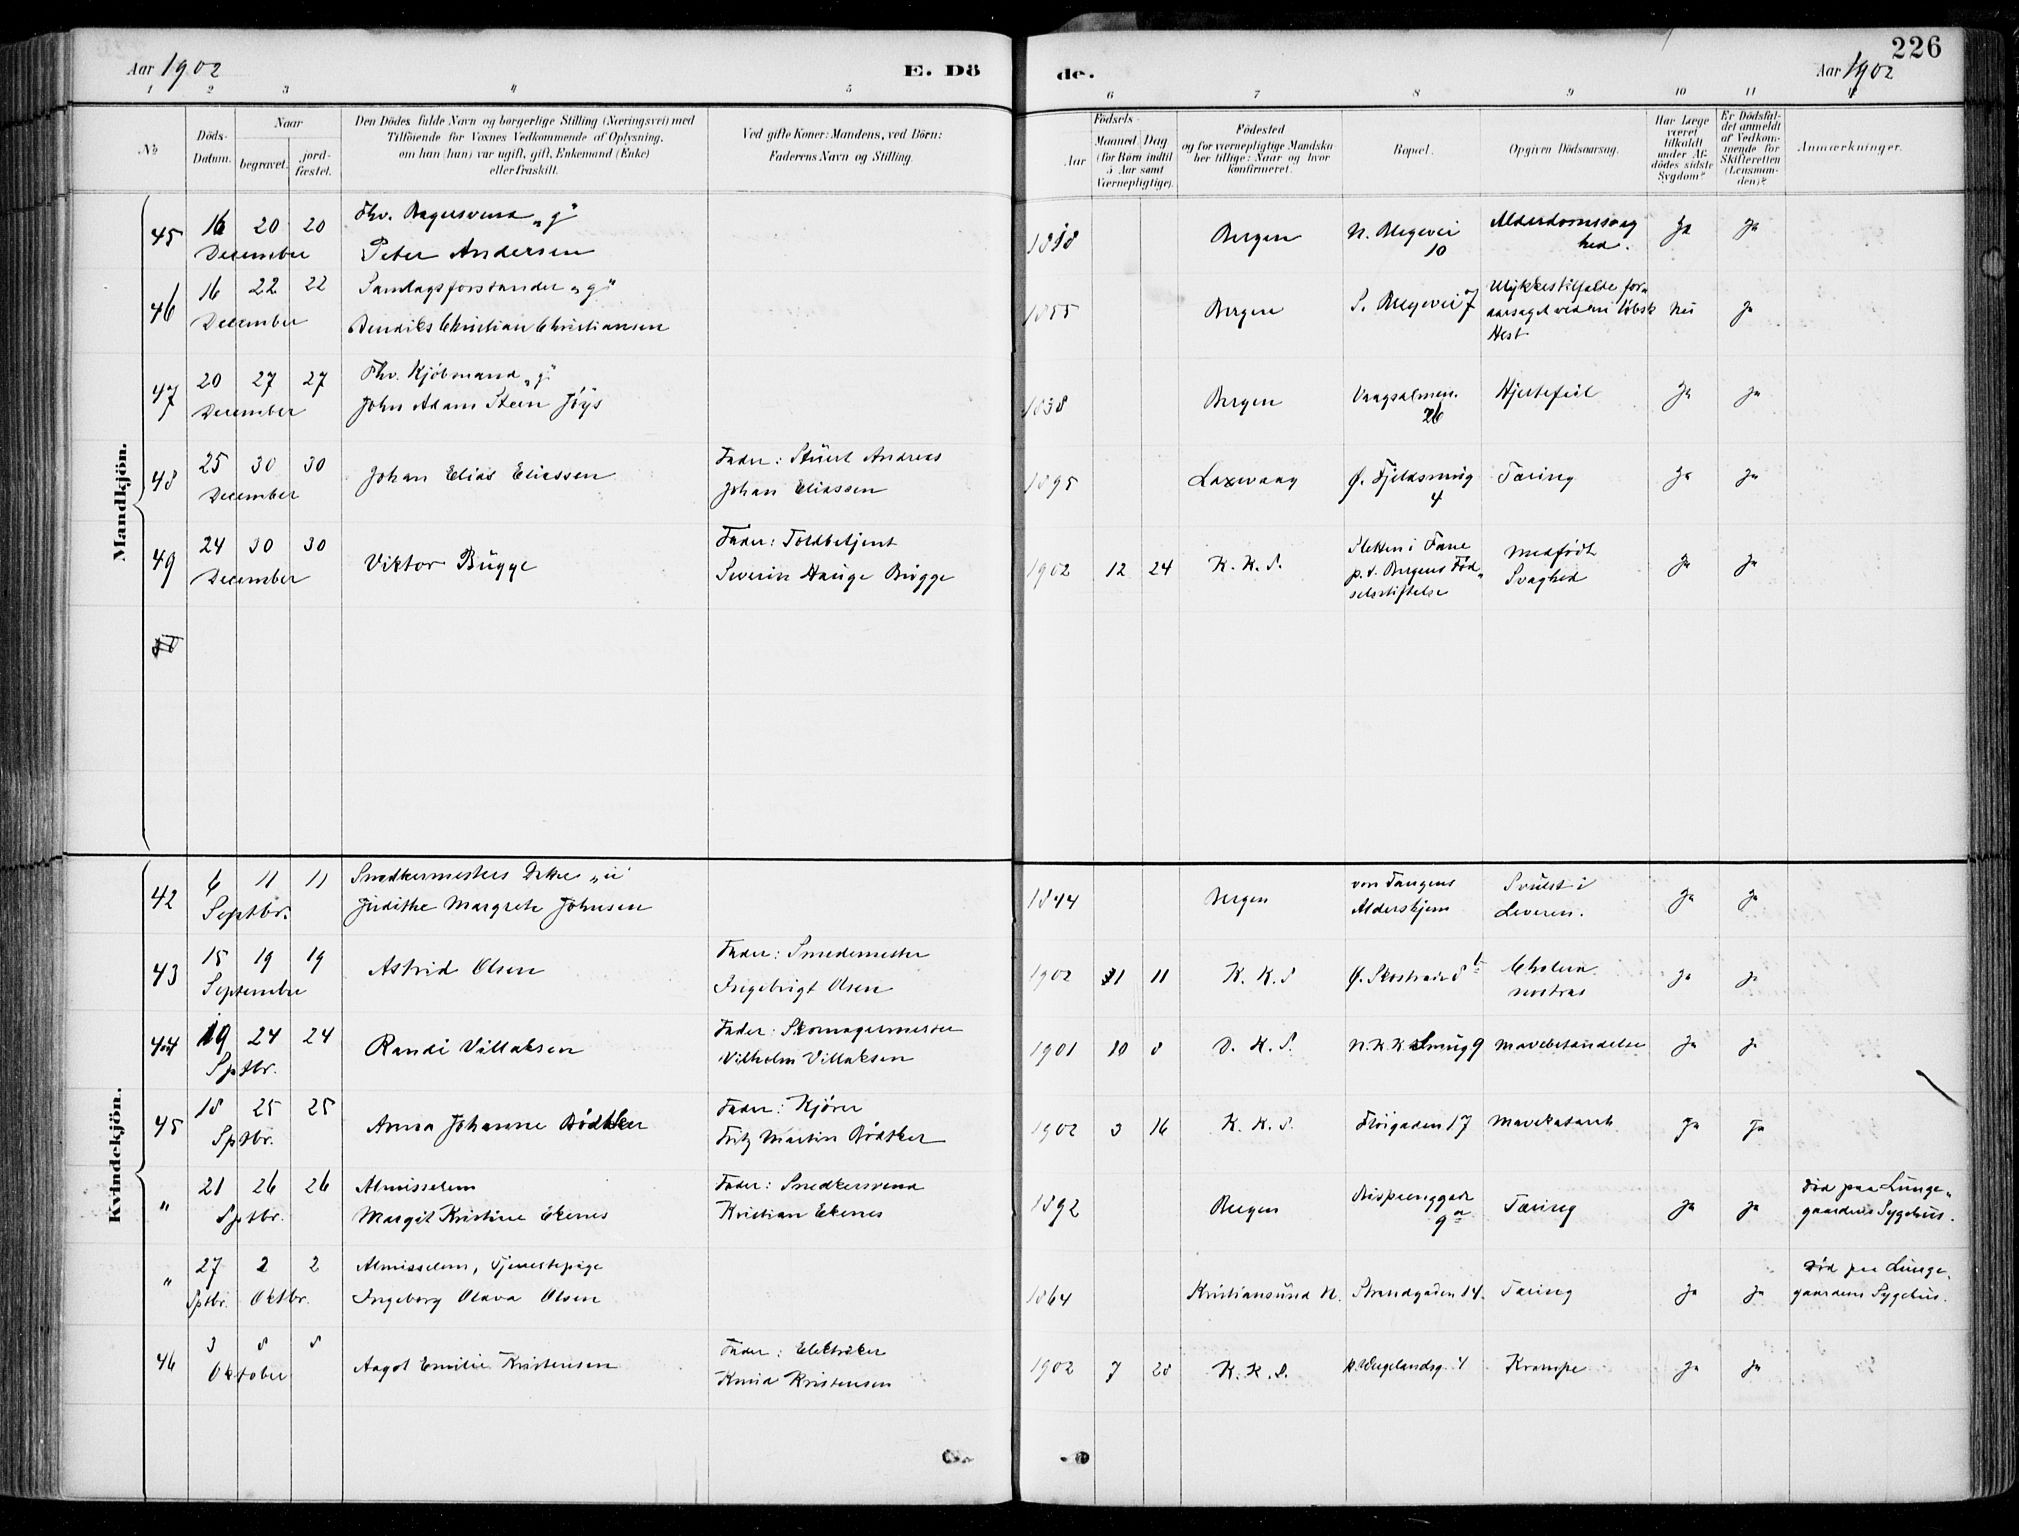 Aar 1902
E. Dö
de.
226
Aar 1902
1 2 3 4 5 6 7 8 9 10 11
No
Döds-Datum.
Naar
begravet.
jordfæstet.
Den Dödes fulde Navn og borgerlige Stilling (Næringsvei) med
Tilföiende for Voxnes Vedkommende af Oplysning,
om han (hun) var ugift, gift, Enkemand (Enke)
eller fraskilt.
Ved gifte Koner: Mandens, ved Börn:
Faderens Navn og Stilling.
Födsels-
Aar
Maaned Dag
(for Börn indtil
5 Aar samt
Værnepligtige).
Födested
og for værnepligtige Mandskaber tillige: Naar og hvor
konfirmeret.
Bopæl.
Opgiven Dödsaarsag.
Har Læge
været
tilkaldt
under Afdödes sidste
Sygdom?
Er Dödsfaldet anmeldt
af Vedkommende for
Skifteretten
(Lensmanden)?
Anmærkninger.
Mandkjön.
45 16 20 20 December
Fhv. Bagersvend „g"
Peter Andersen
Bergen
10
Alderdomssvaghed.
Ja Ja
46 16 22 22 December
„g"
Christian Christiansen
1855 Bergen
S. Bergevei 7
Ulykkestilfælde foraarsaget ved en løbsk
Hest
Nei Ja
47 20 27 27 December
Fhv. Kjöbmand „g"
John Adam Steen Jøys
1838 Bergen
Vaagsalmen.
26
Hjertefeil
Ja Ja
48 25 30 30 December
Johan Elias Eliassen
Fader: Stuert Andreas
Johan Eliassen
1895 Laxevaag
Ø. Fjeldsmug
4
Tæring
Ja Ja
49 24 30 30 December
Viktor Bugge
Fader: Toldbetjent
Severin Hauge Bugge
1902 12 24 K. K. S.
Sletten i Fane
p. t. Bergens Fødselsstiftelse
Medfødt
Svaghed
Ja Ja
Kvindekjön.
42 6 11 11 Septbr.
Snedkermesters Datter „u"
Judithe Margrete Johnsen
1844 Bergen
von Tangens
Aldershjem
Svulst i
Leveren.
Ja Ja
43 15 19 19 September
Astrid Olsen
Fader: Smedemester
Ingebrigt Olsen
1902 11 K. K. S
Cholera
nostras
Ja Ja
44 19 24 24 Sptbr.
Randi Villaksen
Fader: Skomagermester
Vilhelm Villaksen
1901 10 8 D. K. S.
Smug 9
Mavebetændelse
Ja Ja
45 18 25 25 Sptbr.
Anna Johanne Bødtker
Fader: Kjører
Fritz Martin Bødtker
1902 3 16 K. K. S.
Fløigaden 17
Mavekatarrh
Ja Ja
" 21 26 26 Sptbr.
Almisselem
Margit Kristine Ekenes
Fader: Snedkersvend
Kristian Ekenes
1892 Bergen
9a
Tæring
Ja Ja
Død paa Lungegaardens Sygehus.
" 27 2 2 Sptbr. Oktbr.
Almisselem, Tjenestepige
Ingeborg Olava Olsen
1864 Kristiansund N.
Strandgaden 14.
Tæring
Ja Ja
Død paa Lungegaardens Sygehus.
46 3 8 8 Oktober
Aagot Emilie Kristensen
Fader: Elektriker
Knud Kristensen
1902 7 28 K. K. S.
Wergelandsg. 4
Krampe
Ja Ja